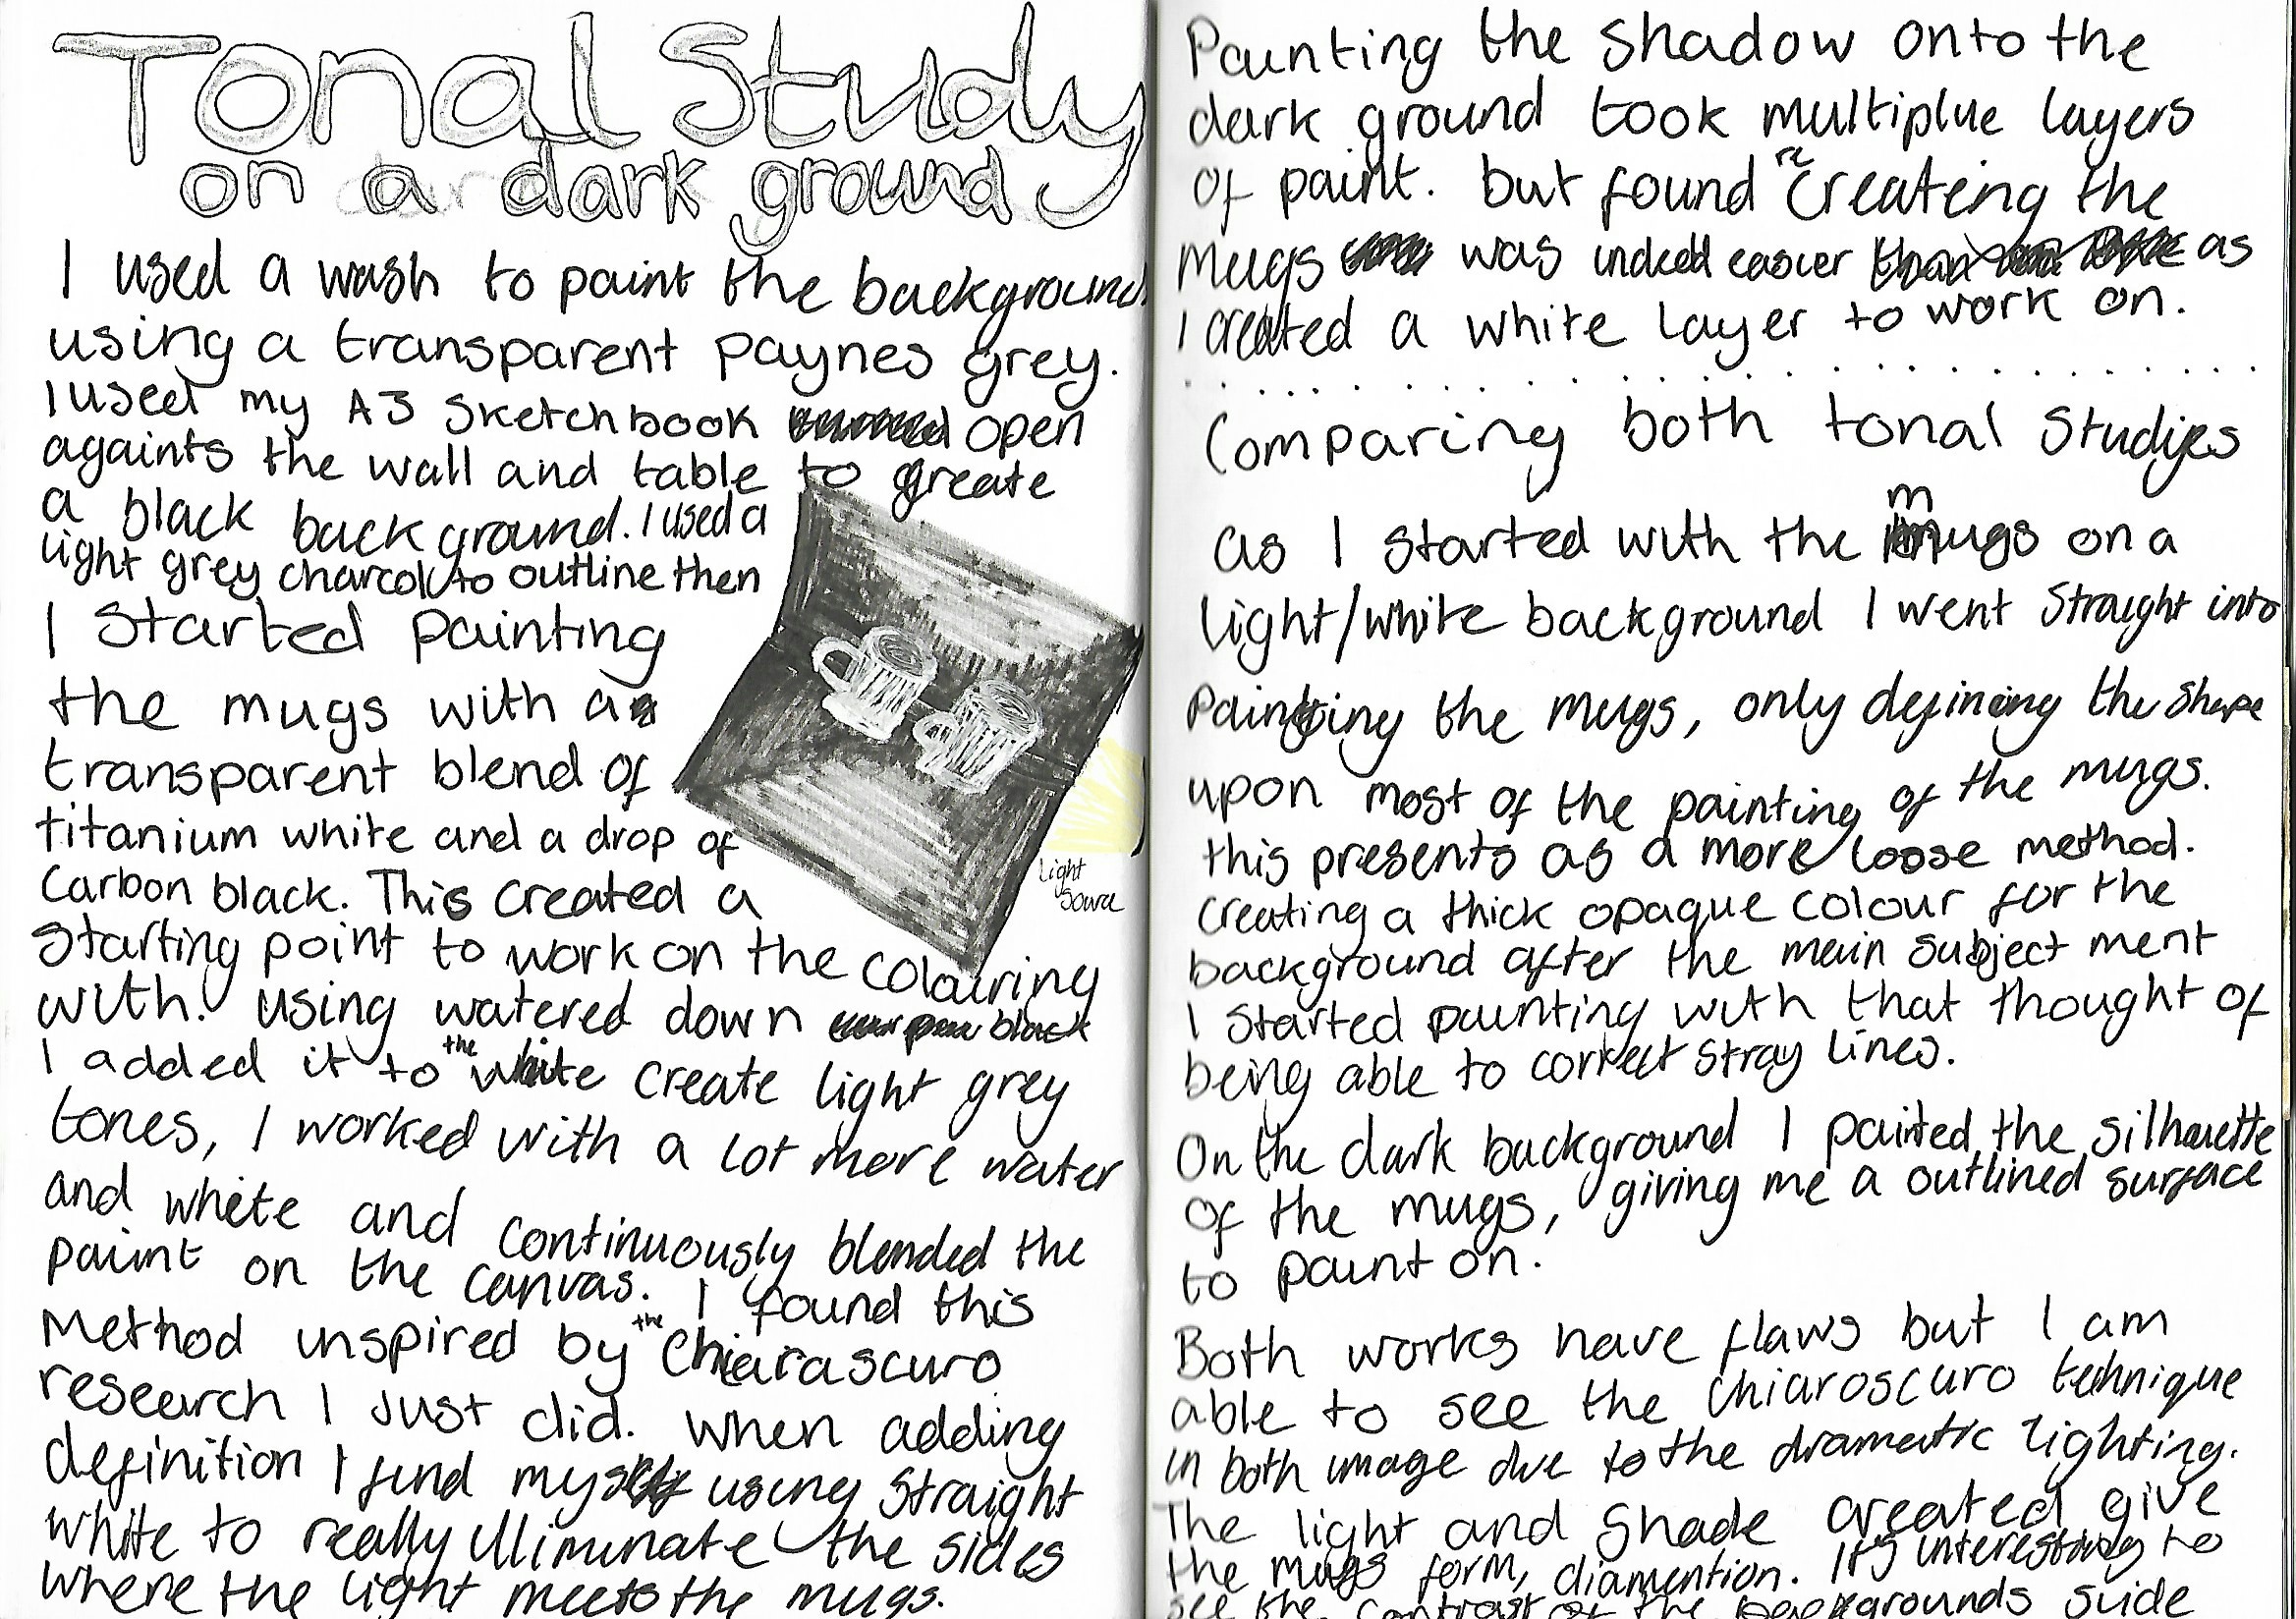 Tonal Study
on a dark ground
I used a wash to paint the background
using a transparent paynes grey.
I used my A3 Sketchbook open
againts the wall and table to create
a black background. I used a
light grey charcol to outline then
I started painting
the mugs with a
transparent blend of
titanium white and a drop of
Carbon black. This created a
Starting point to work on the colouring
with. using watered down black
I added it to the white create light grey
tones, I worked with a lot more water
and white and continuously blended the
paint on the canvas. I found this
Method inspired by the Chiarascuro
research I just did. When adding
definition I find myself using straight
white to really illiminate the sides
where the light meets the mugs.
Light
Source
Painting the shadow onto the
dark ground took multiplue layers
of paint. but found recreateing the
mugs was indeed easier as
I created a white layer to work on.
Comparing both tonal Studies
as I started with the mugs on a
light/white background I went Straight into
Painting the mugs, only defineing the shape
upon most of the painting of the mugs.
this presents as a more loose method.
Creating a thick opaque colour for the
background after the main subject ment
I started painting with that thought of
being able to correct stray lines.
On the dark background I painted the silhouette
of the mugs, giving me a outlined surface
to paint on.
Both works have flaws but I am
able to see the chiaroscuro technique
in both image due to the dramatic lighting.
The light and Shade created give
the mugs form, diamention. It's interesting to
see the contrast of the backgrounds side